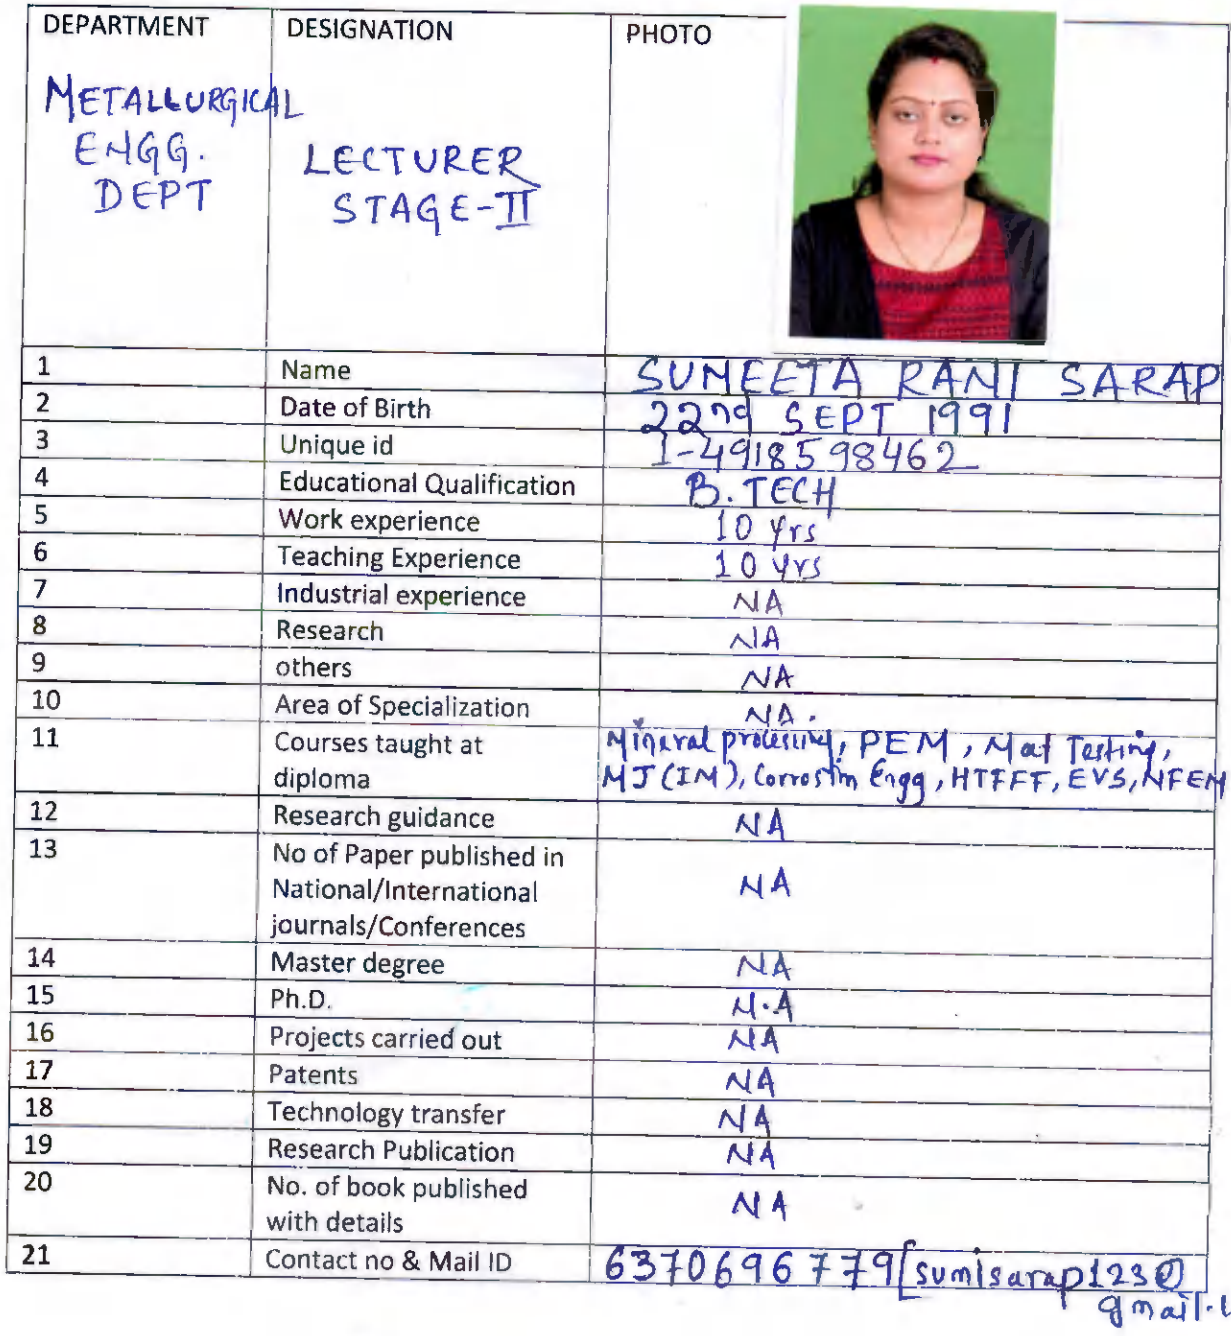 DEPARTMENT DESIGNATION PHOTO
METALLURGICAL
ENGG.
DEPT
LECTURER
STAGE-II
1 Name SUNEETA RANI SARAP
2 Date of Birth 22nd SEPT 1991
3 Unique id 1-4918598462
4 Educational Qualification B.TECH
5 Work experience 10 Yrs
6 Teaching Experience 10 Yrs
7 Industrial experience NA
8 Research NA
9 others NA
10 Area of Specialization NA.
11 Courses taught at
diploma
Mineral processing, PEM, Mat Testing,
MJ(IM), Corrosion Engg, HTFFF, EVS, NFEM
12 Research guidance NA
13 No of Paper published in
National/International
journals/Conferences
NA
14 Master degree NA
15 Ph.D. N.A
16 Projects carried out NA
17 Patents NA
18 Technology transfer NA
19 Research Publication NA
20 No. of book published
with details
NA
21 Contact no & Mail ID 6370696779 [sumisarap123@
gmail.